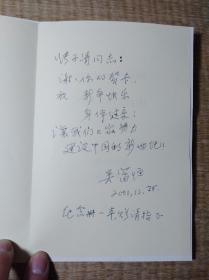 同志:
谢谢你的贺卡
祝 新年快乐
身体健康!
让我们一起努力
建设中国的新世纪!
吴富恒
2001.12.28.
纪念册一本 请指正